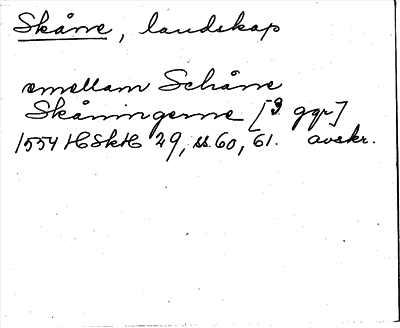 Skåne, landskap
emellam Schåne
Skåningerne [3 ggr]
1554 HSkH 29, ss. 60, 61. avskr.